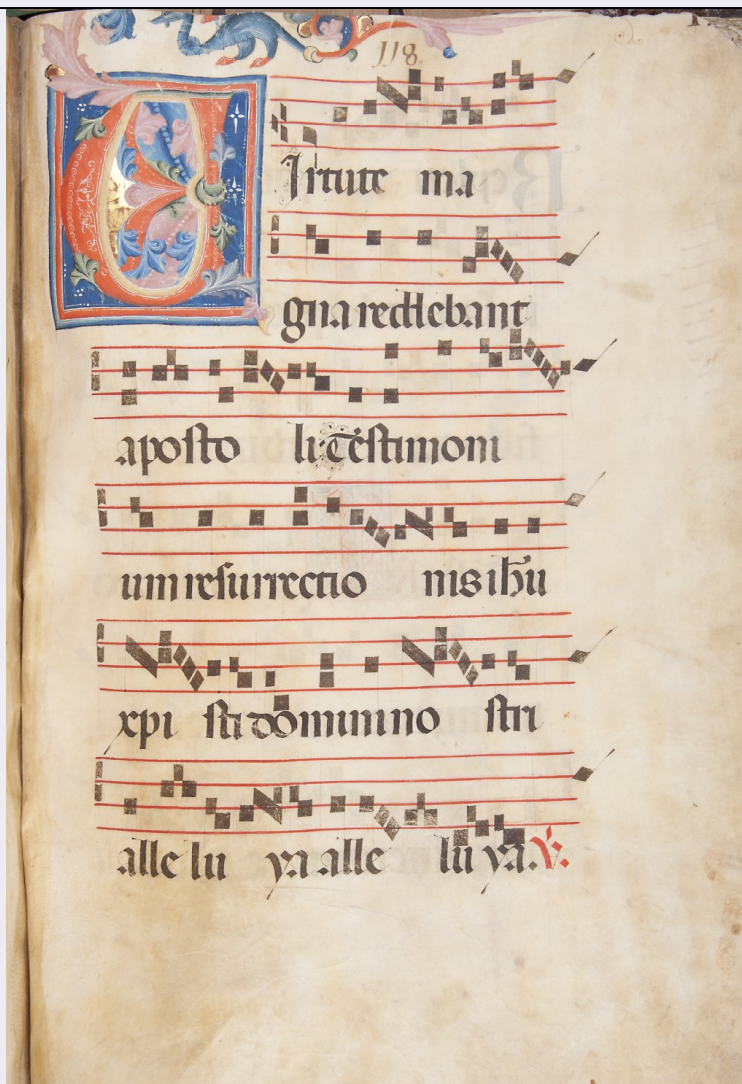 118.
VIrtute ma
gna reddebant
aposto li testimoni
um resurrectio nis ihu
xpi sti domini no stri
alle lu ya alle lu ya. V.